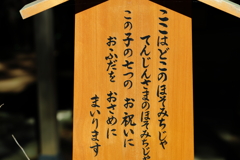 ここはどこのほそみちじゃ
てんじんさまのほそみちじゃ
この子の七つの お祝いに
おふだを おさめに
まいります